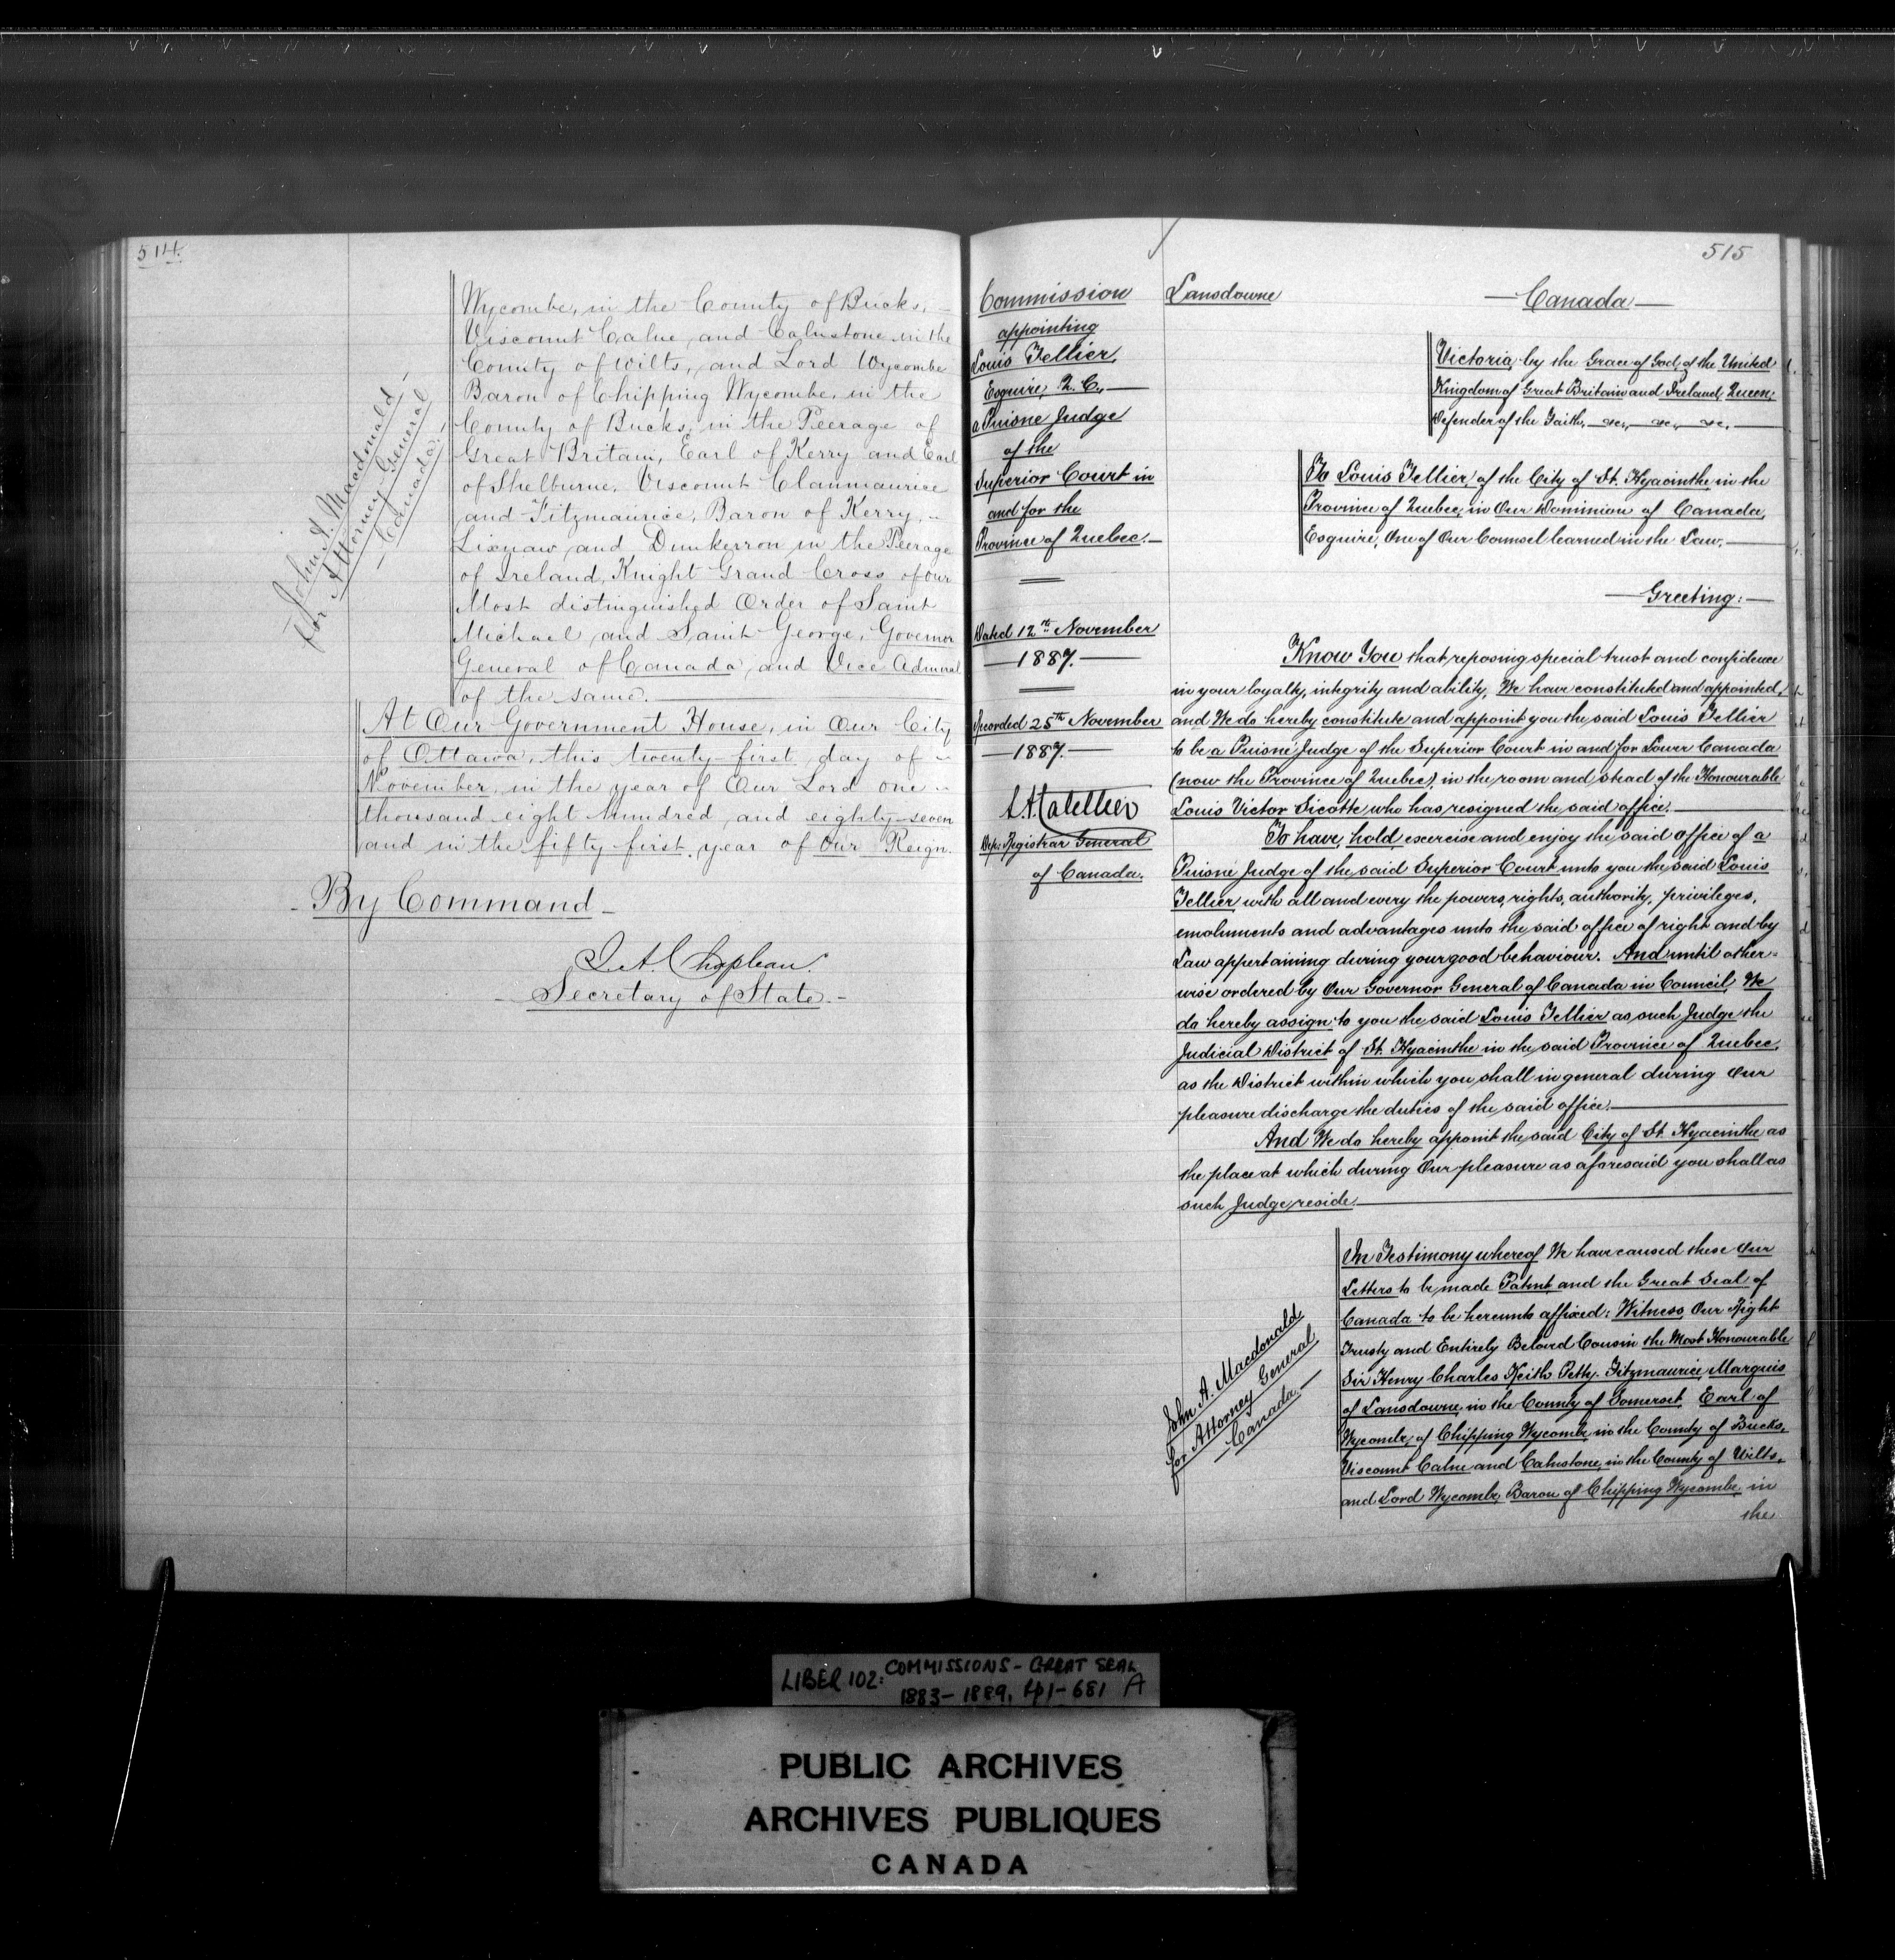 514.
Wycombe, in the County of Bucks,
Viscount Calne, and Calnstone in the
County of Wilts, and Lord Wycombe
Baron of Chipping Wycombe, in the
County of Bucks, in the Peerage of
Great Britain, Earl of Kerry and Earl
of Shelburne, Viscount Clanmaurice
and Fitzmaurice, Baron of Kerry,
Lixnaw and Dunkerron in the Peerage
of Ireland, Knight Grand Cross of Our
Most distinguished Order of Saint
Michael and Saint George, Governor
General of Canada, and Vice Admiral
of the same.
John A. Macdonald,
for Attorney General
Canada.
At Our Government House, in Our City
of Ottawa, this twenty-first day of
November, in the year of Our Lord one
thousand eight hundred, and eighty-seven
and in the fifty first year of Our Reign.
By Command
J. A. Chapleau.
Secretary of State.
515
Commission
appointing
Louis Tellier,
Esquire, Q. C.,
a Puisne Judge
of the
Superior Court in
and for the
Province of Quebec.
Dated 12th November
1887.
Recorded 25th November
1887.
L. A. Catellier
Dep: Registrar General
of Canada.
Lansdowne
Canada
Victoria, by the Grace of God, of the United
Kingdom of Great Britain and Ireland, Queen,
Defender of the Faith, &c., &c., &c.
To Louis Tellier, of the City of St. Hyacinthe, in the
Province of Quebec, in Our Dominion of Canada,
Esquire, One of Our Counsel learned in the Law.
Greeting:
Know You that reposing special trust and confidence
in your loyalty, integrity and ability, We have constituted and appointed,
and We do hereby constitute and appoint you the said Louis Tellier
to be a Puisne Judge of the Superior Court in and for Lower Canada
(now the Province of Quebec), in the room and stead of the Honourable
Louis Victor Sicotte who has resigned the said office.
To have, hold exercise and enjoy the said office of a
Puisne Judge of the said Superior Court unto you the said Louis
Tellier with all and every the powers, rights, authority, privileges,
emoluments and advantages unto the said office of right and by
Law appertaining during your good behaviour. And until other-
wise ordered by Our Governor General of Canada in Council, We
do hereby assign to you the said Louis Tellier as such Judge the
Judicial District of St. Hyacinthe in the said Province of Quebec,
as the District within which you shall in general during Our
pleasure discharge the duties of the said office.
And We do hereby appoint the said City of St. Hyacinthe as
the place at which during Our pleasure as aforesaid you shall as
such Judge, reside.
John A. Macdonald
for Attorney General
Canada.
In Testimony whereof We have caused these Our
Letters to be made Patent and the Great Seal of
Canada to be hereunto affixed: Witness, Our Right
Trusty and Entirely Beloved Cousin the Most Honourable
Sir Henry Charles Keith Petty-Fitzmaurice, Marquis
of Lansdowne, in the County of Somerset, Earl of
Wycombe, of Chipping Wycombe in the County of Bucks,
Viscount Calne and Calnstone, in the County of Wilts,
and Lord Wycombe, Baron of Chipping Wycombe, in
the
LIBER 102: COMMISSIONS - GREAT SEAL
1883-1889, 441-681 A
PUBLIC ARCHIVES
ARCHIVES PUBLIQUES
CANADA